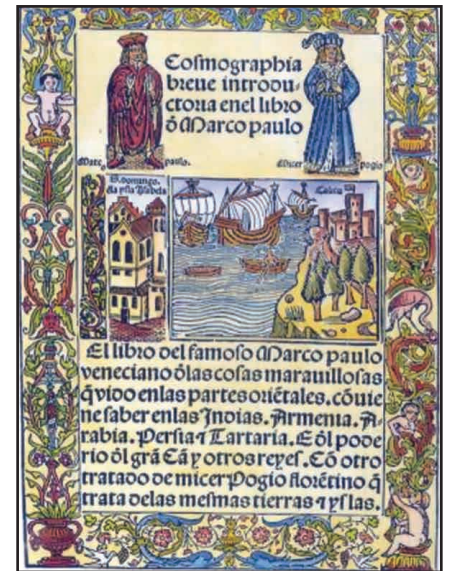 Cosmographia
breue introdu
ctoria enel libro
ð Marco paulo
Marc paulo.
Micer pogio
S. domingo.
Calicu
El libro del famoso Marco paulo
veneciano ðlas cosas marauillosas
q̄ vido enlas partes oriētales. cōuie
ne saber enlas Indias. Armenia. A
rabia. Persia ⁊ Tartaria. E ðl pode
rio ðl grā Cā y otros reyes. Cō otro
tratado de micer Pogio florētino q̄
trata delas mesmas tierras ⁊ yslas.